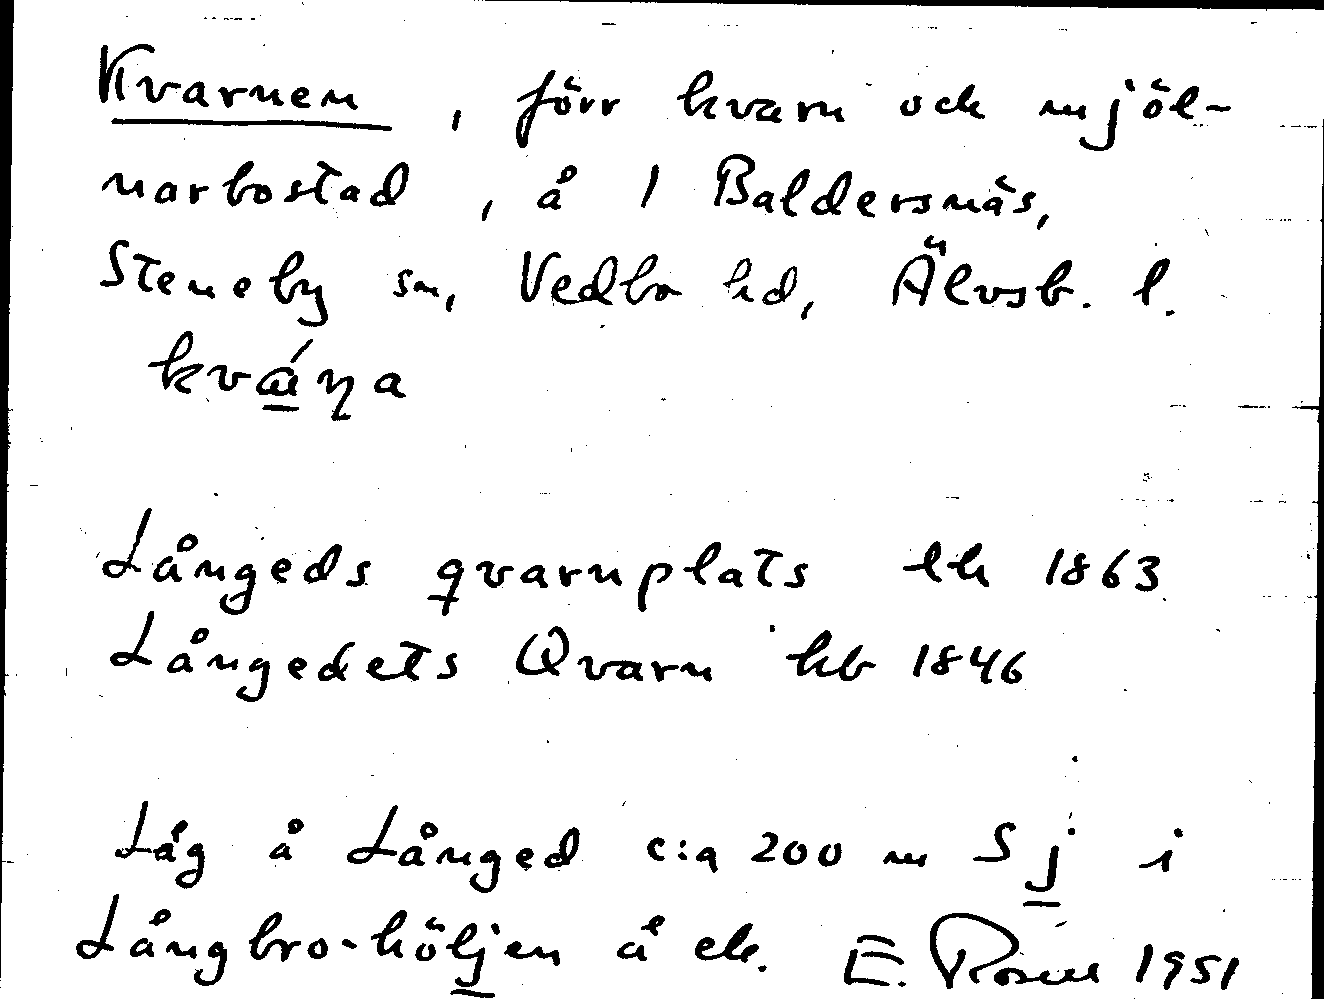 Kvarnen, förr kvarn och mjöl-
narbostad, å 1 Baldersnäs,
Steneby sn, Vedbo hd, Älvsb. l.
kvá̱ɳa
Långeds qvarnplats lh 1863
Långedets Qvarn hb 1846
Låg å Långed c:a 200 m S j i
Långbro-höljen å ek. E. Rosell 1951